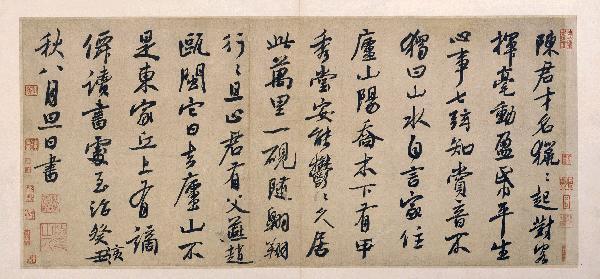 陳君才名獵〻起對客
揮毫動盈帋平生
心事七弦知賞音不
獨曰山水自言家住
廬山陽喬木下有甲
秀堂安能鬱〻久居
此萬里一硯隨翱翔
行〻且止君有父燕趙
甌閩它日去廬山不
是東家丘上有謫
僊讀書處至治癸亥
秋八月旦日書